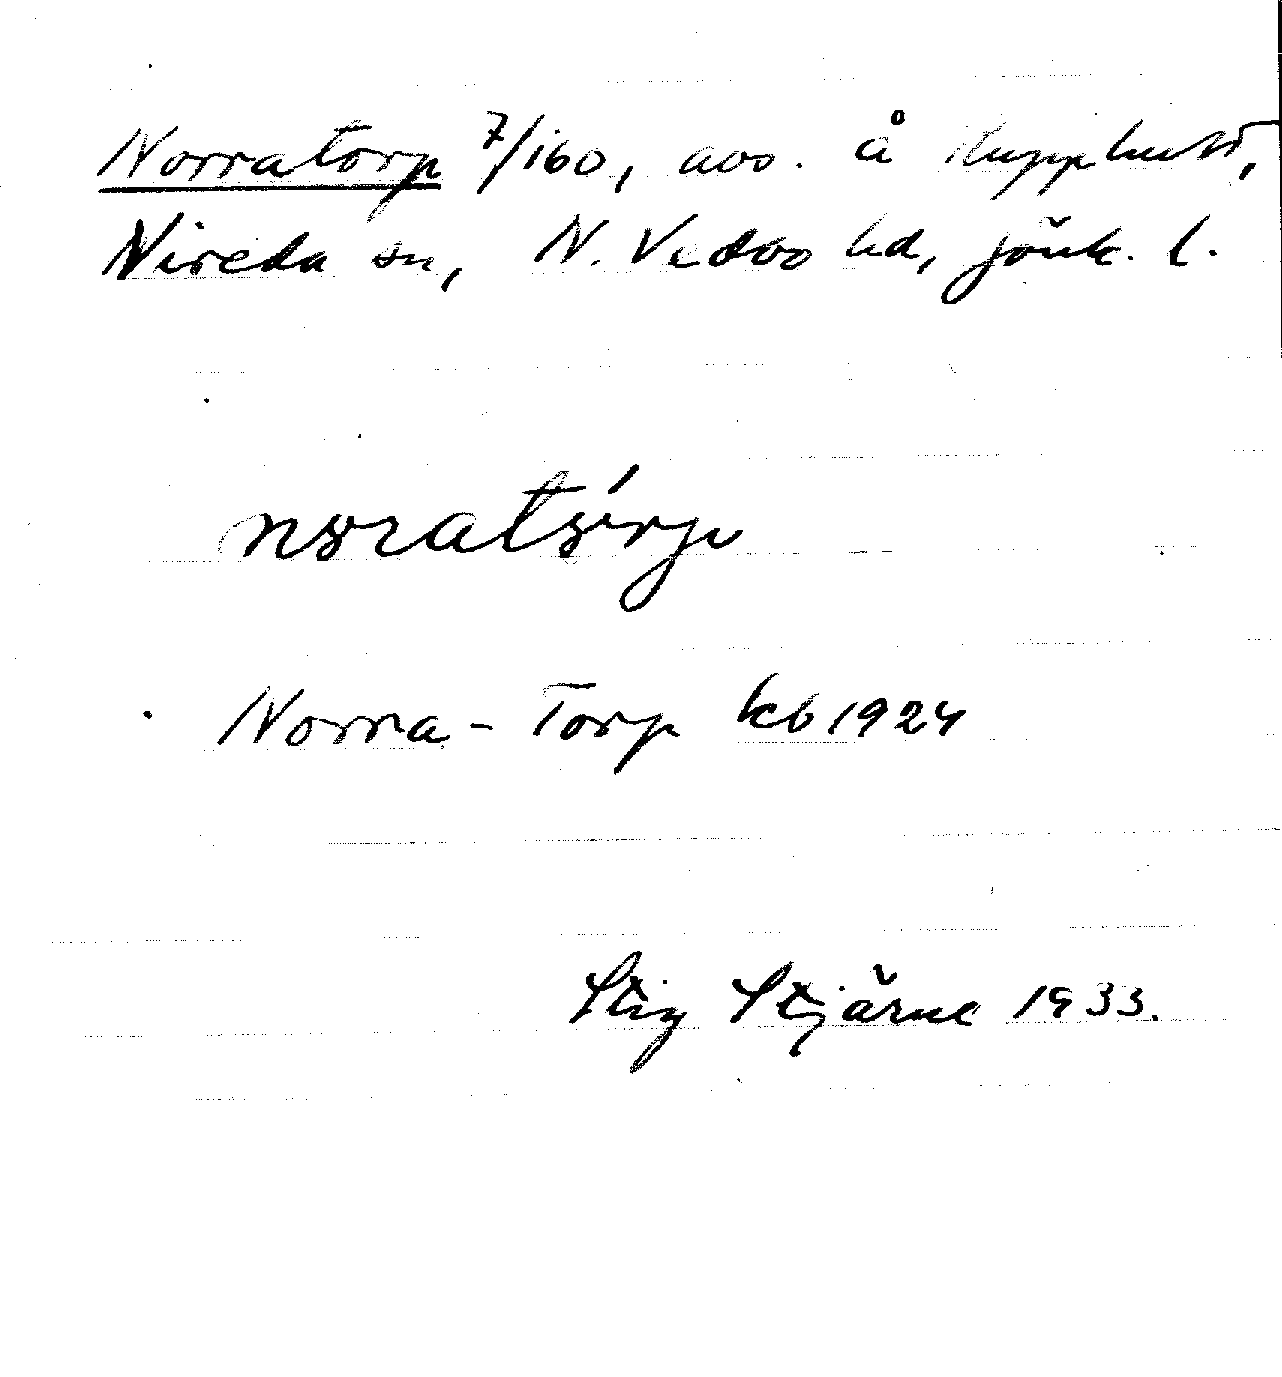 Norratorp 7/160, avs. å Kopphult,
Nireda sn, N. Vedbo hd, Jönk. l.
noratórp
Norra-Torp kb 1924
Stig Stjärne 1933.